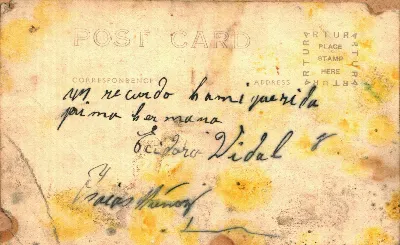 POST CARD
ARTURA ARTURA ARTURA ARTURA
PLACE
STAMP
HERE
CORRESPONDENCE
ADDRESS
un recuerdo a mi querida
prima hermana
Vidal y